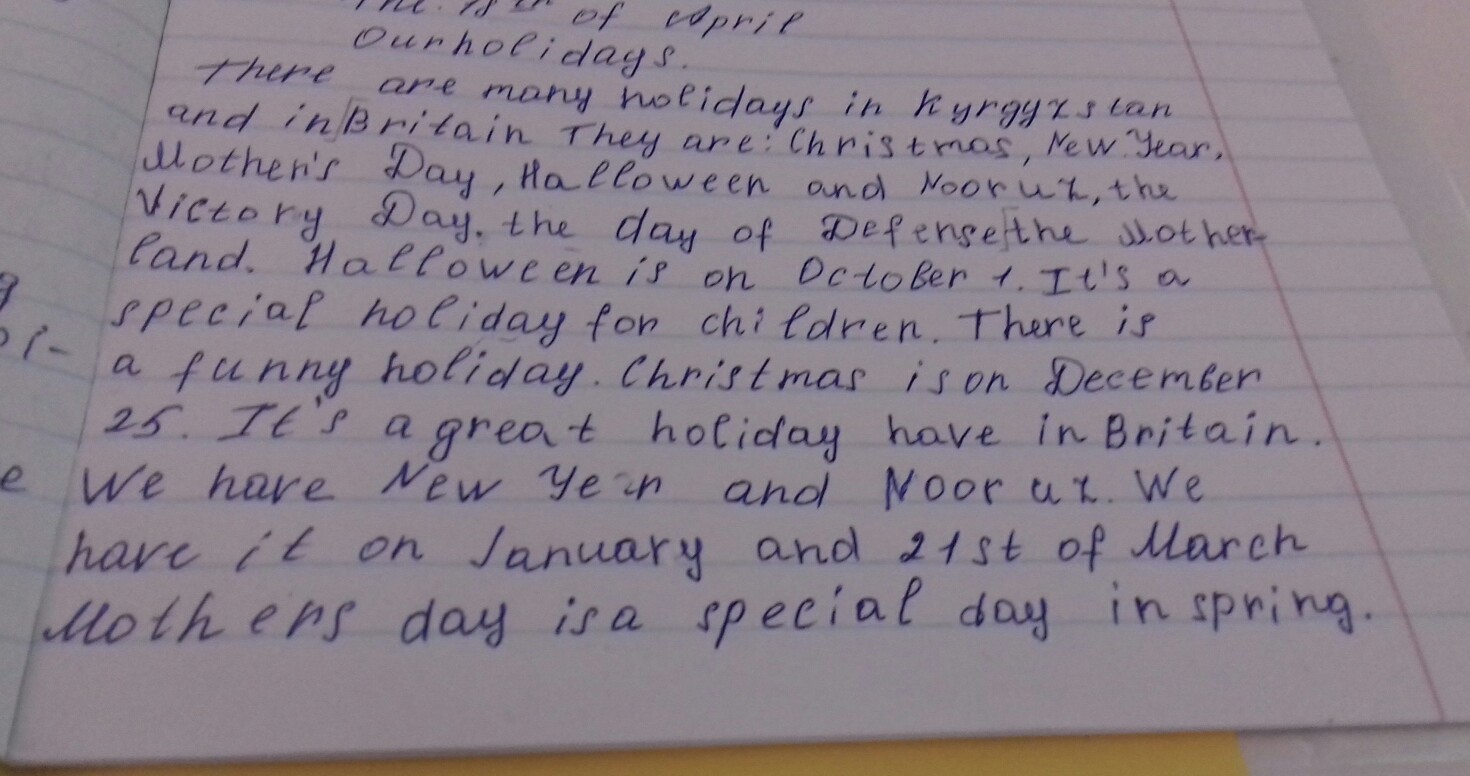 of April
Our holidays.
There are many holidays in Kyrgyzstan
and in Britain They are: Christmas, New Year,
Mother's Day, Halloween and Nooruz, the
Victory Day, the day of Defense the Mother-
land. Halloween is on October 1. It's a
special holiday for children. There is
a funny holiday. Christmas is on December
25. It's a great holiday have in Britain.
We have New Year and Nooruz. We
have it on January and 21st of March
Mothers day is a special day in spring.